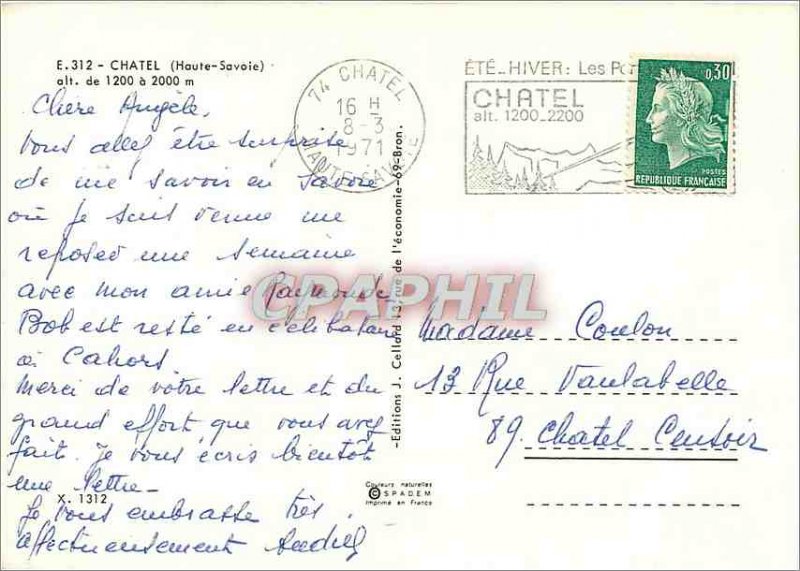 E.312 - CHATEL (Haute-Savoie)
alt. de 1200 à 2000 m
Chère Angèle,
Vous allez être surprise
de me savoir en Savoie
où je suis venue me
reposer une semaine
avec mon amie Raymonde
Bob est resté en célibataire
à Cahors.
Merci de votre lettre et du
grand effort que vous avez
fait. Je vous écris bientôt
une lettre -
X. 1312
Je vous embrasse très
affectueusement
74 CHATEL
16 H
8-3
1971
HAUTE-SAVOIE
ÉTÉ_HIVER: Les
CHATEL
alt. 1200_2200
0,30
POSTES
REPUBLIQUE FRANÇAISE
-Editions J. Cellard 13, rue de l'économie-69-Bron.
CPAPHIL
Madame Coulon
13 Rue Vaulabelle
89. Chatel Censoir
Couleurs naturelles
© SPADEM
Imprimé en France